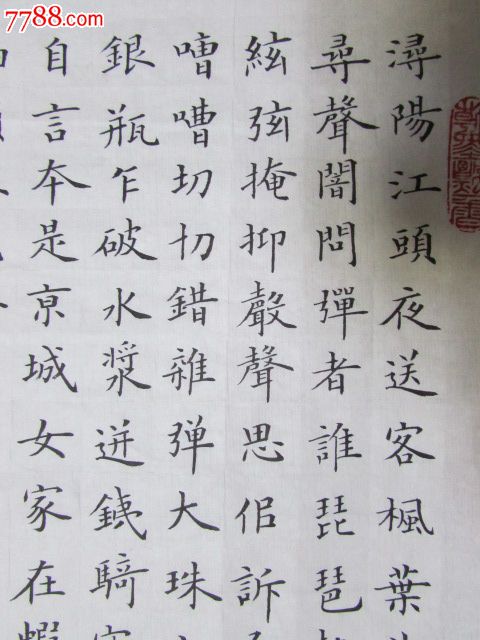 7788.com
潯陽江頭夜送客楓葉
尋聲闇問彈者誰琵琶
絃弦掩抑聲聲思佀訴
嘈嘈切切錯雜弹大珠
銀瓶乍破水漿迸銕騎
自言本是亰城女家在蝦